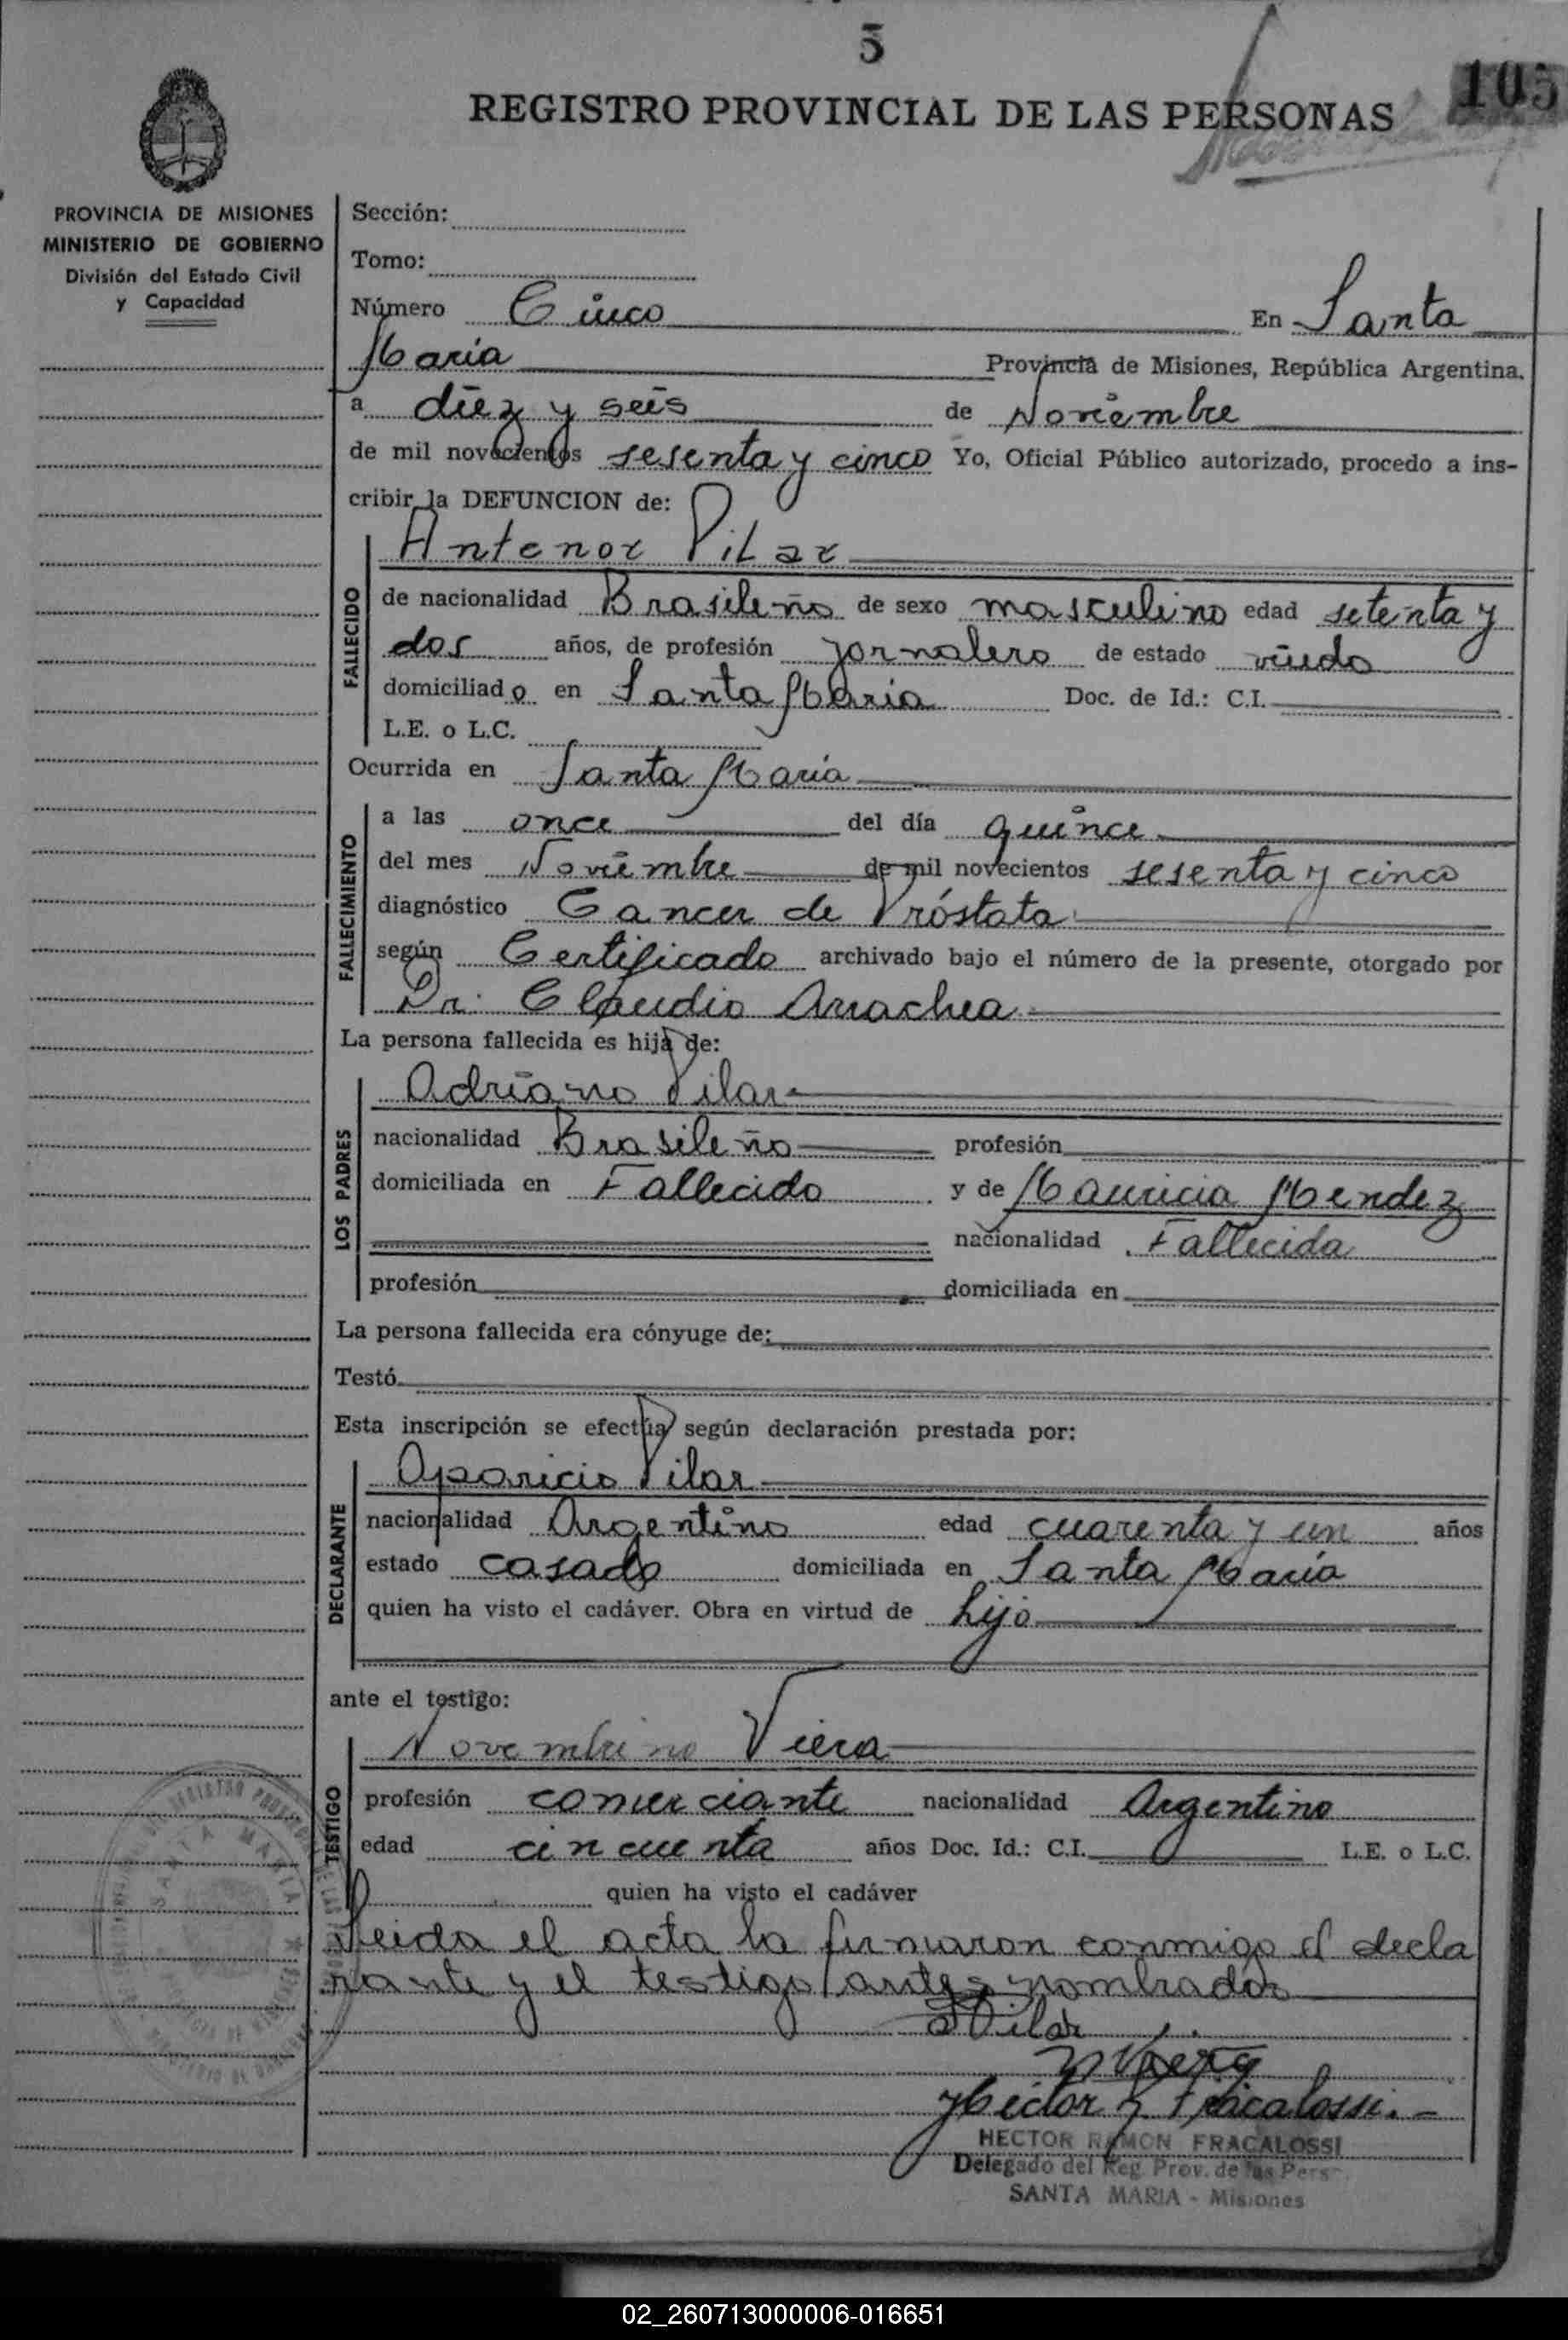 5
105
REGISTRO PROVINCIAL DE LAS PERSONAS
PROVINCIA DE MISIONES
MINISTERIO DE GOBIERNO
División del Estado Civil
y Capacidad
Sección:
Tomo:
Número Cinco En Santa
Maria Provincia de Misiones, República Argentina.
a diez y seis de Noviembre
de mil novecientos sesenta y cinco Yo, Oficial Público autorizado, procedo a ins-
cribir la DEFUNCION de:
FALLECIDO
Antenor Pilar
de nacionalidad Brasileño de sexo masculino edad setenta y
dos años, de profesión jornalero de estado viudo
domiciliado en Santa Maria Doc. de Id.: C.I.
L.E. o L.C.
Ocurrida en Santa Maria
FALLECIMIENTO
a las once del día quince
del mes Noviembre de mil novecientos sesenta y cinco
diagnóstico Cancer de Próstata
según Certificado archivado bajo el número de la presente, otorgado por
Dr. Claudio Arrachea
La persona fallecida es hija de:
LOS PADRES
Adriano Pilar
nacionalidad Brasileño profesión
domiciliada en Fallecido y de Mauricia Mendez
nacionalidad Fallecida
profesión domiciliada en
La persona fallecida era cónyuge de:
Testó
Esta inscripción se efectúa según declaración prestada por:
DECLARANTE
Aparicio Pilar
nacionalidad Argentino edad cuarenta y un años
estado casado domiciliada en Santa Maria
quien ha visto el cadáver. Obra en virtud de hijo
ante el testigo:
TESTIGO
Novembrino Viera
profesión comerciante nacionalidad Argentino
edad cincuenta años Doc. Id.: C.I. L.E. o L.C.
quien ha visto el cadáver
Leida el acta la firmaron conmigo el decla
rante y el testigo antes nombrados
Pilar
N Viera
Héctor R Fracalossi.-
HECTOR RAMON FRACALOSSI
Delegado del Reg. Prov. de las Pers.
SANTA MARIA - Misiones
SANTA MARIA
02_260713000006-016651